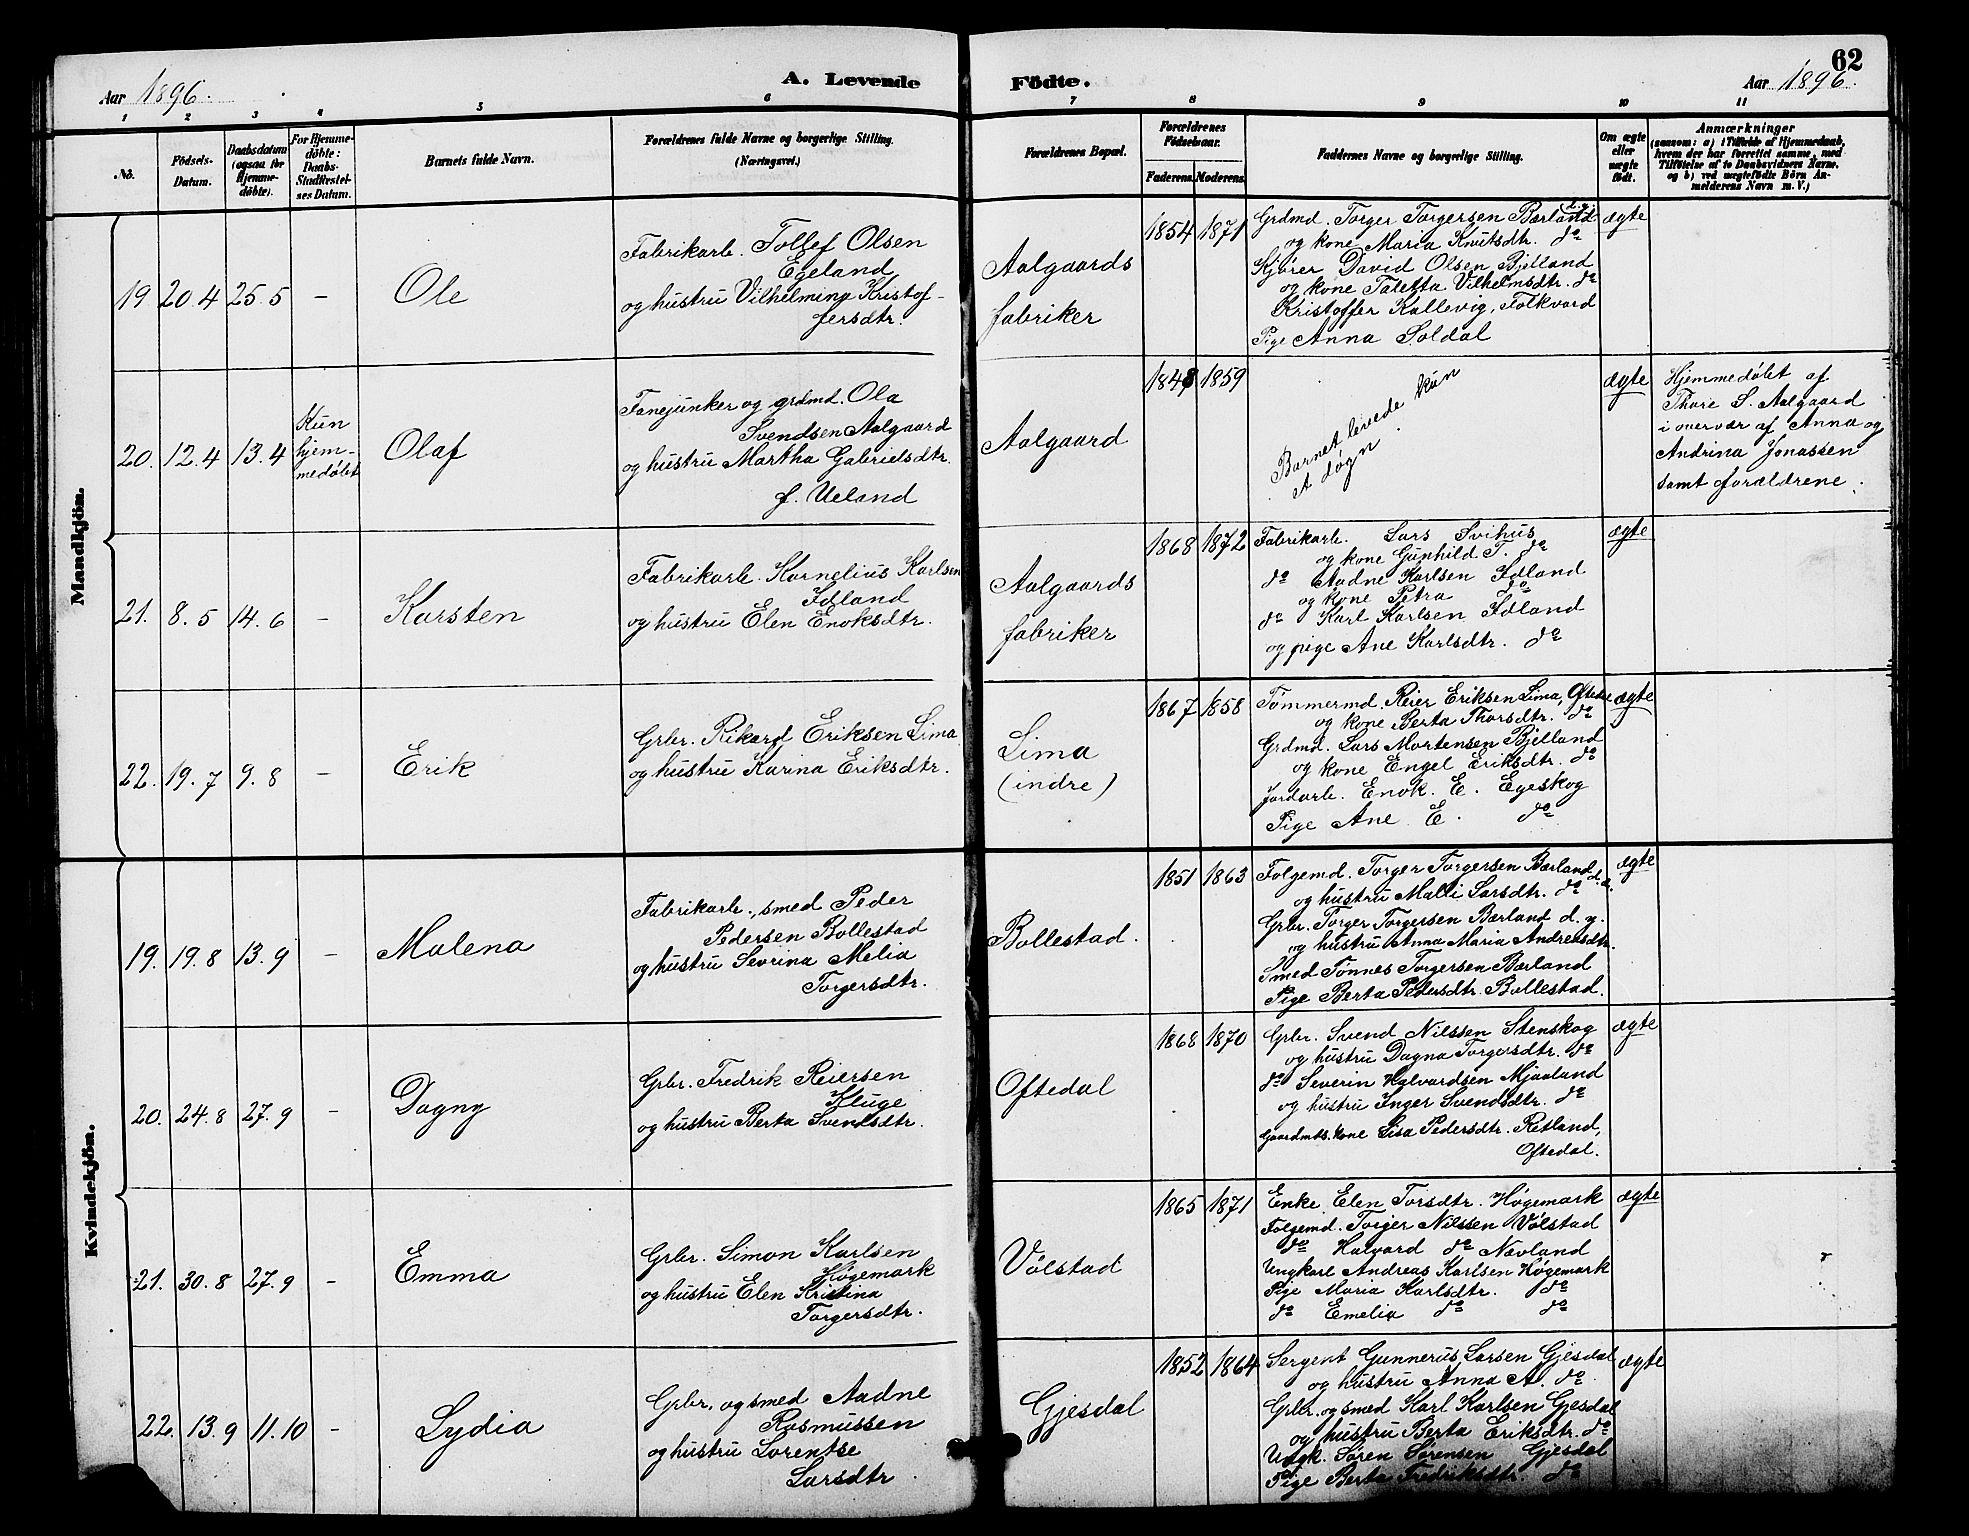 62
Aar 1896.
A. Levende Födte.
Aar 1896.
1 2 3 4 5 6 7 8 9 10 11
No.
Födsels-Datum.
Daabsdatum (ogsaa for Hjemmedöbte).
For Hjemmedöbte: Daabs Stadfestelses Datum.
Barnets fulde Navn.
Forældrenes fulde Navne og borgerlige Stilling.
(Næringsvei.)
Forældrenes Bopæl.
Forældrenes Födselsaar.
Faderens. Moderens.
Faddernes Navne og borgerlige Stilling.
Om ægte eller uægte födt.
Anmærkninger
(saasom: a) i Tilfælde af Hjemmedaab,
hvem der har forrettet samme, med
Tilföielse af to Daabsvidners Navne,
og b) ved uægtefödte Börn Anmelderens Navn m. V.)
Mandkjön.
19 20.4 25.5 – Ole
Fabrikarb. Tollef Olsen
Egeland
og hustru Vilhelmina Kristof-
fersdtr.
Aalgaards
fabriker
1854 1871
Grdmd. Torger Torgersen Bærland d.y.
og kone Maria Knutsdtr. do
Kjører David Olsen Bjelland
og kone Taletta Vilhelmsdtr. do
Kristoffer Kallevig, Folkvord
Pige Anna Soldal
ægte
20. 12.4 13.4
Kun
hjem-
medøbt
Olaf
Fanejunker og grdmd. Ola
Svendsen Aalgaard
og hustru Martha Gabrielsdtr.
f. Ueland
Aalgaard
1848 1859
Barnet levede kun
et døgn.
ægte
Hjemmedøbt af
Thore S. Aalgaard
i overvær af Anna og
Andrina Jonassen
samt forældrene.
21. 8.5 14.6 – Karsten
Fabrikarb. Kornelius Karlsen
Idland
og hustru Elen Enoksdtr.
Aalgaards
fabriker
1868 1872
Fabrikarb. Lars Svihus
og kone Gunhild T. do
do Aadne Karlsen Idland
og kone Petra do
do Karl Karlsen Idland
og pige Ane Karlsdtr. do
ægte
22. 19.7 9.8 – Erik
Grbr. Rikard Eriksen Lima
og hustru Karina Eriksdtr.
Lima
(indre)
1867 1858
Tømmermd. Reier Eriksen Lima, Oftedal
og kone Berta Thorsdtr. do
Grdmd. Lars Mortensen Bjelland
og kone Engel Eriksdtr. do
Jordarb. Enok. E. Egeskog
Pige Ane E. do
ægte
Kvindekjön.
19. 19.8 13.9 – Malena
Fabrikarb., smed Peder
Pedersen Bollestad
og hustru Sevrina Melia
Torgersdtr.
Bollestad.
1851 1863
Folgemd. Torger Torgersen Bærland d.æ.
og hustru Malli Larsdtr. do
Grbr. Torger Torgersen Bærland d. y.
og hustru Anna Maria Andreasdtr.
Smed Tønnes Torgersen Bærland
Pige Berta Pedersdtr. Bollestad.
ægte
20. 24.8 27.9 – Dagny
Grbr. Fredrik Reiersen
Kluge
og hustru Berta Svendsdtr.
Oftedal
1868 1870
Grbr. Svend Nilssen Stenskog
og hustru Dagna Torgersdtr. do
do Severin Halvardsen Mjaaland
og hustru Inger Svendsdtr. do
Gaardmds. kone Lisa Pedersdtr. Retland,
Oftedal.
ægte
21. 30.8 27.9 – Emma
Grbr. Simon Karlsen
Høgemark
og hustru Elen Kristina
Torgersdtr.
Vølstad
1865 1871
Enke Elen Torsdtr. Høgemark
Folgemd. Torger Nilssen Vølstad
do Halvard do Nævland
Ungkarl Andreas Karlsen Høgemark
Pige Maria Karlsdtr. do
do Emelia do do
ægte
22. 13.9 11.10 – Lydia
Grbr. og smed Aadne
Rasmussen
og hustru Lorentse
Larsdtr
Gjesdal
1852 1864
Sergent Gunnerus Larsen Gjesdal
og hustru Anna A. do
Grbr. og smed Karl Karlsen Gjesdal
og hustru Berta Eriksdtr. do
Ungk. Søren Sørensen Gjesdal
Pige Berta Fredriksdtr. do
ægte